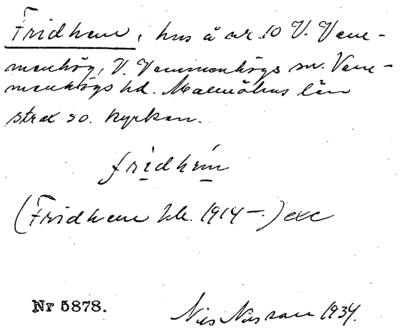 Fridhem, hus å nr. 10 V. Vem-
menhög, V. Vemmenhögs sn. Vem-
menhögs hd. Malmöhus län
strax so. kyrkan.
fridhem
(Fridhem hb. 1914-.) exc
Nr 5878.
Nils 1934.